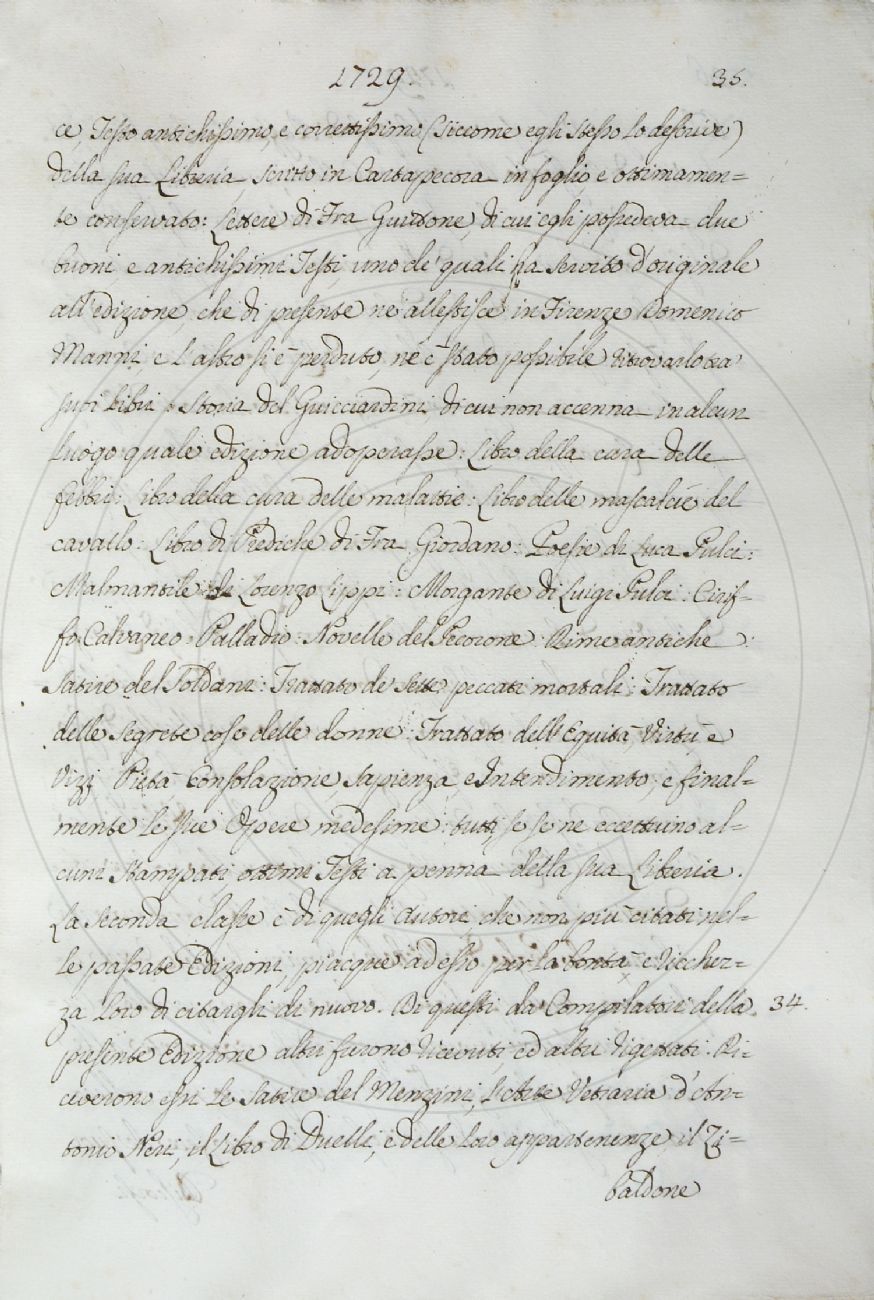 1729. 35.
ce, Testo antichissimo, e correttissimo (siccome egli stesso lo descrive)
della sua Libreria scritto in Cartapecora in foglio, e ottimamen=
te conservato: Lettere di Fra Guittone, di cui egli possedeva due
buoni, e antichissimi Testi, uno de' quali ha servito d'originale
all'edizione, che di presente ne allestisce in Firenze Domenico
Manni, e l'altro si è perduto, nè è stato possibile ritrovarlo tra
suoi libri: Storia del Guicciardini, di cui non accenna in alcun
luogo quale edizione adoperasse: Libro della cura delle
febbri: Libro della cura delle malattie: Libro delle mascalcie del
cavallo: Libro di Prediche di Fra Giordano: Poesie di Luca Pulci:
Malmantile di Lorenzo Lippi: Morgante di Luigi Pulci: Cirif=
fo Calvaneo: Palladio: Novelle del Pecorone: Rime antiche:
Satire del Soldani: Trattato de sette peccati mortali: Trattato
delle segrete cose delle donne: Trattato dell'Equità, Virtù e
Vizj Pietà Consolazione, Sapienza, e Intendimento; e final=
mente le sue Opere medesime: tutti, se se ne eccettuino al=
cuni stampati ottimi Testi a penna della sua Libreria.
La seconda classe è di quegli Autori che non più citati nel=
le passate Edizioni, piacque ad esso per la bontà, e ricchez=
za loro di citargli di nuovo. Di questi da Compilatori della 34.
presente Edizione altri furono ricevuti, ed altri rigettati. Ri=
ceverono essi le Satire del Menzini, l'Arte Vetraria d'An=
tonio Neri, il Libro di Duelli, e delle loro appartenenze, il Zi=
baldone